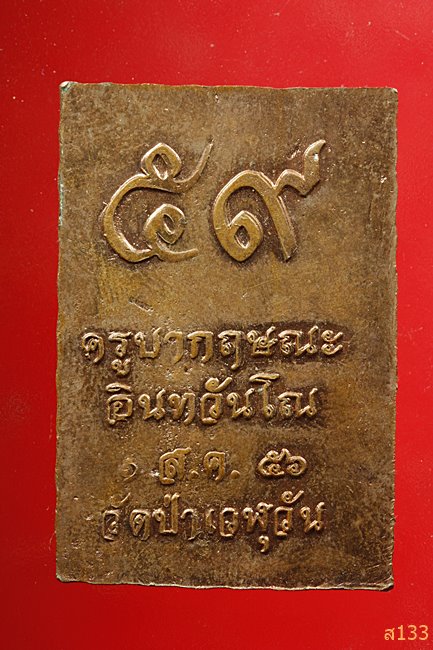 ๕๙
ครูบากฤษณะ
อินทวันโณ
๑ ส.ค. ๕๖
วัดป่าเวฬุวัน
ส133